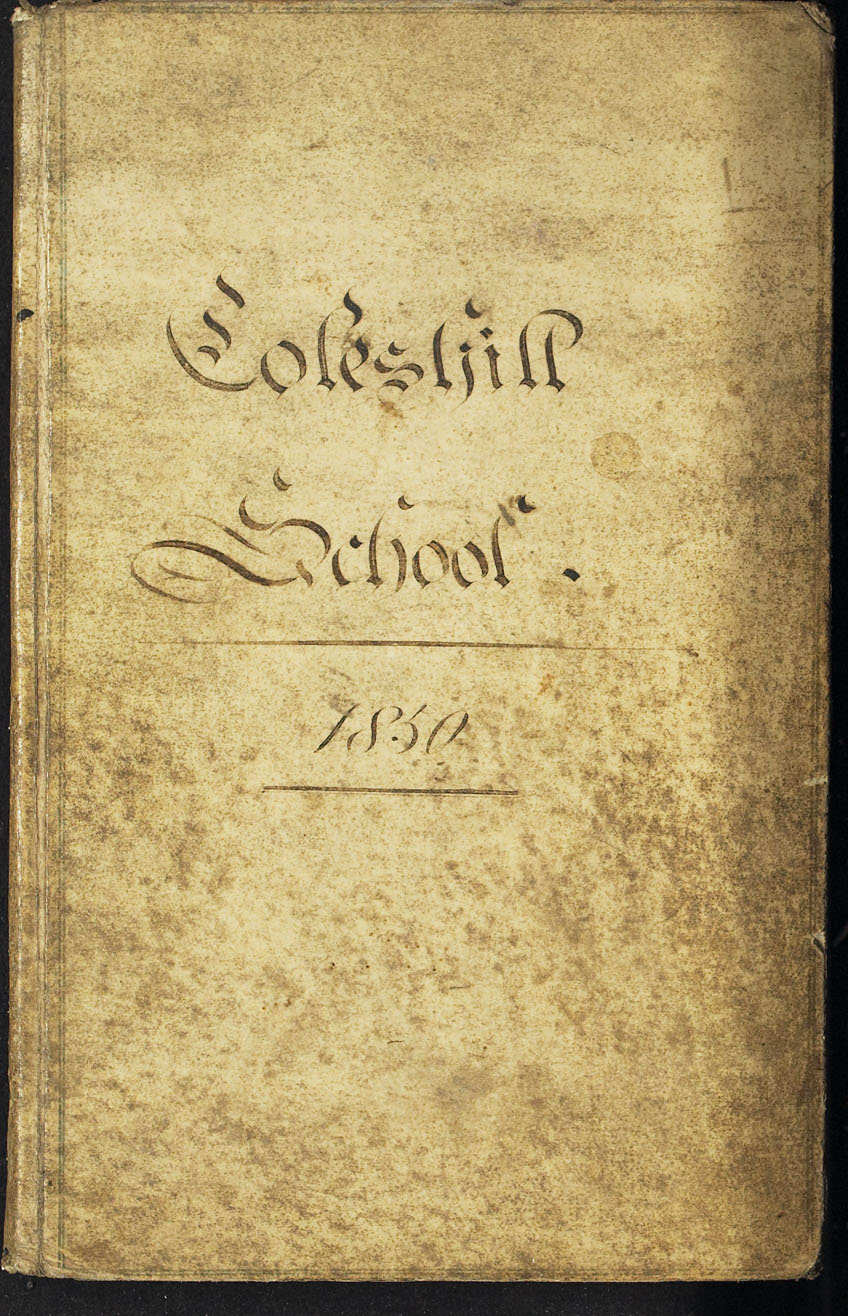 Coleshill
School.
1850